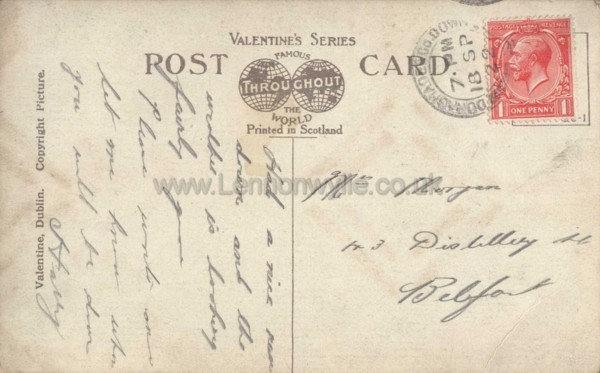 VALENTINE'S SERIES
POST CARD
FAMOUS
THROUGHOUT
THE
WORLD
Printed in Scotland
Valentine, Dublin. Copyright Picture.
DONAGHADEE CO. DOWN
7. PM
18 SP
POSTAGE REVENUE
1 ONE PENNY 1
www.Lennonwylie.co.uk
Had a nice run
down and the
weather is looking
fairly good
Please write and
let me know when
you will be down
Harry
Mrs Morgan
Distillery St
Belfast